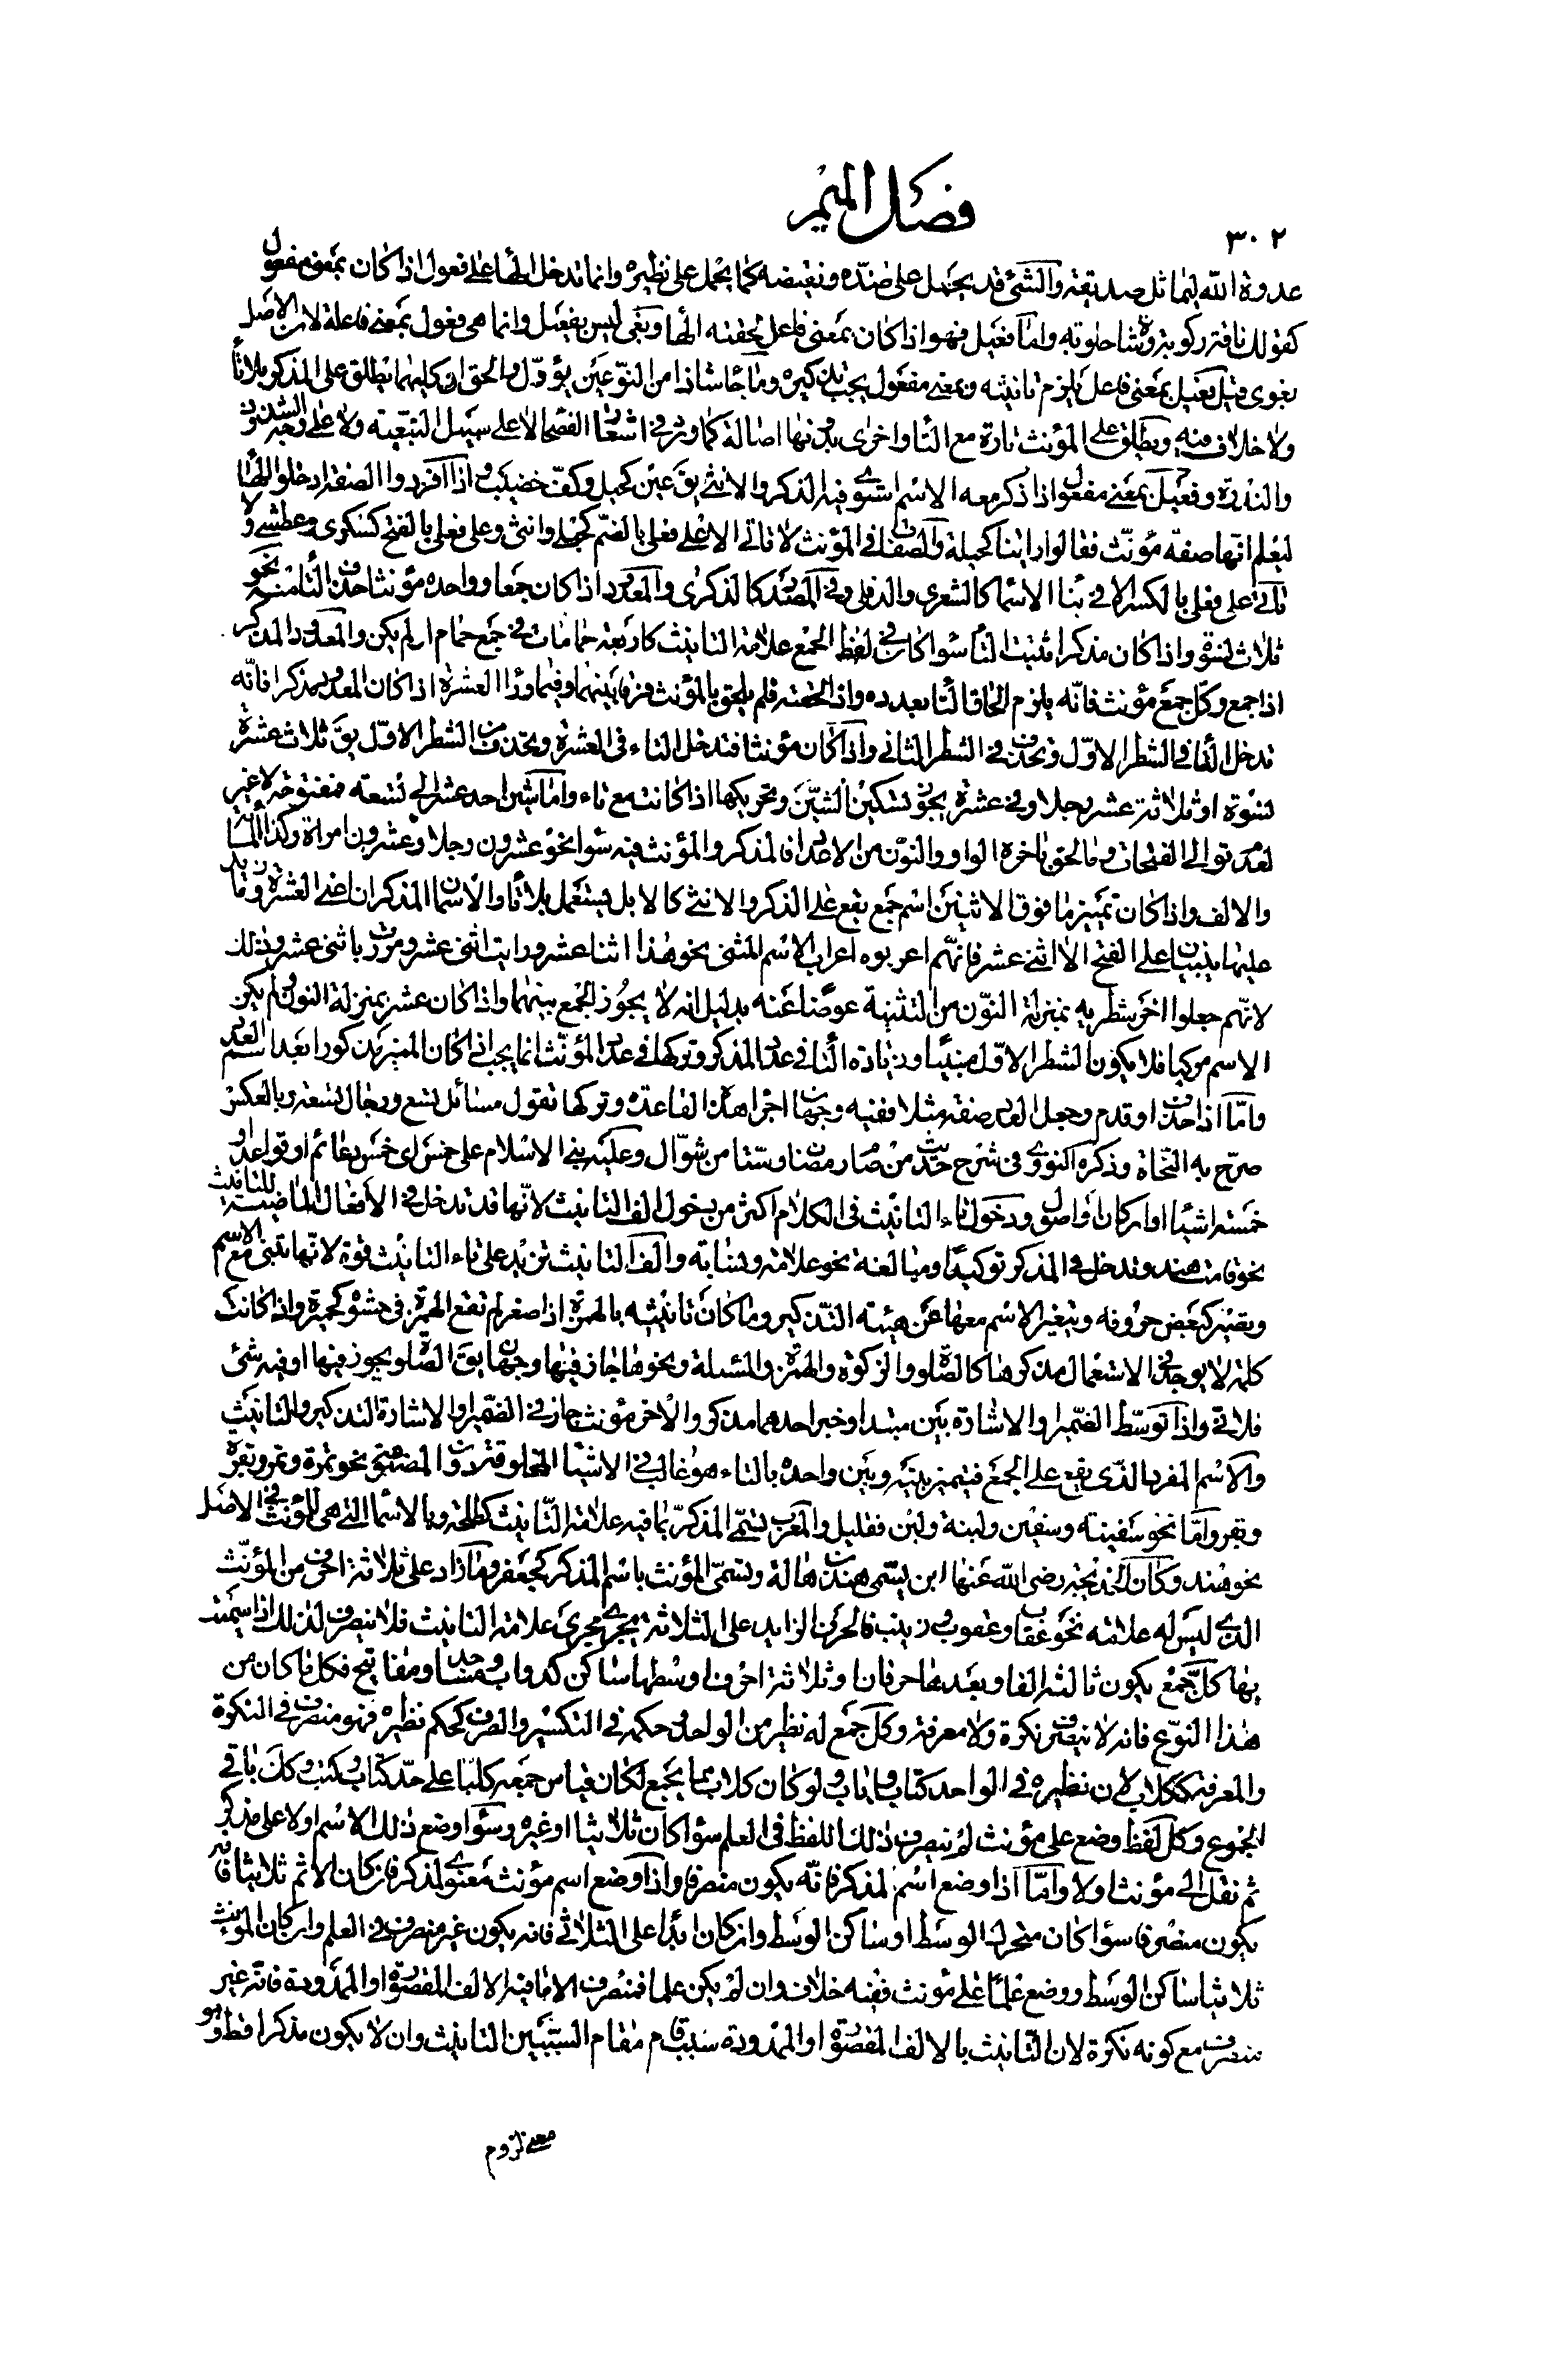 فصل الميم
٣٠٢
عدوة الله ليماثل صديقة والشئ قد يحمل على ضده ونقيضه كما يحمل على نظيره وانما تدخل الها على فعول اذا كان بمعنى مفعول
كقولك ناقة ركوبة وشا حلوبة واما فعيل فهو اذا كان بمعنى فاعل لحقته الها وبغى ليس بفعيل وانما هى فعول بمعنى فاعلة لان الاصل
بغوى قيل فعيل بمعنى فاعل يلزم تانيثه وبمعنى مفعول يجب تذكيره وما جا شاذا من النوعين يؤول والحق ان كليهما يطلق على المذكر بلا تا
ولا خلاف فيه ويطلق على المؤنث تارة مع التا واخرى بدونها اصالة كما ورد فى اشعار الفصحا لا على سبيل التبعية ولا على وجه الشذوذ
والندرة وفعيل بمعنى مفعول اذا ذكر معه الاسم استوى فيه الذكر والانثى يق عين كحيل وكف خضيب واذا افردوا الصفة ادخلوا الها
ليعلم انها صفة مؤنث فقالوا راينا كحيلة والصفات فى المؤنث لا تاتى الا على فعلى بالضم كحبلى وانثى وعلى فعلى بالفتح كسكرى وعطشى ولا
تاتى على فعلى بالكسر الا فى بنا الاسما كالشعرى والدفلى وفى المصدر كالذكرى والمعدود اذا كان جمعا وواحده مؤنثا حذف التا منه نحو
ثلاث نسوة واذا كان مذكرا مثبت التا سوا كان فى لفظ الجمع علامة التانيث كاربعة حمامات فى جمع حمام او لم يكن والمعدود المذكر
اذا جمع وكل جمع مؤنث فانه يلزم الحاق التا بعدده واذا لحقته فلم يلحق بالمؤنث فرقا بينهما وفيما وراء العشرة اذا كان المعدود مذكرا فانه
تدخل التا فى الشطر الاول وتحذف فى الشطر الثانى واذا كان مؤنثا فتدخل التاء فى العشرة وتحذف من الشطر الاول يق ثلاث عشرة
نسوة او ثلاثة عشر رجلا وفى عشرة يجوز تسكين الشين وتحريكها اذا كانت مع تاء واما شين احد عشر الى تسعة فمفتوحة لا غير
لعدم توالى الفتحات وما لحق باخره الواو والنون من الاعداد فالمذكر والمؤنث فيه سوا نحو عشرون رجلا وعشرون امراة وكذا الماية
والالف واذا كان تمييز ما فوق الاثنين اسم جمع يقع على الذكر والانثى كالابل يستعمل بلا تا والاسما المذكران اعنى العشرة وما زيد
عليها يبنيان على الفتح الا اثنى عشر فانهم اعربوه اعراب الاسم المثنى نحو هذا اثنا عشر ورايت اثنى عشر ومررت باثنى عشر وذلك
لانهم جعلوا اخر شطريه بمنزلة النون من التثنية عوضا عنه بدليل انه لا يجوز الجمع بينهما واذا كان عشر بمنزلة النون لم يكن
الاسم مركبا فلا يكون الشطر الاول مبنيا وزيادة التا فى عدد المذكر وتركها فى عدد المؤنث انما يجب اذا كان المميز مذكورا بعد اسم العدد
واما اذا حذف او قدم وجعل العدد صفة مثلا ففيه وجهان اجرا هذه القاعدة وتركها تقول مسائل تسع ورجال تسعة وبالعكس
صرح به النحاة وذكره النووى فى شرح حديث من صام رمضان وستا من شوال وعليه بنى الاسلام على خمس اى خمس دعائم او قواعد او
خمسة اشيا او اركان او اصول ودخول تاء التانيث فى الكلام اكثر من دخول الف التانيث لانها قد تدخل فى الافعال الماضية للتانيث
نحو قامت هند وتدخل فى المذكر توكيدا ومبالغة نحو علامة ونسابة والف التانيث تزيد على تاء التانيث قوة لانها تبنى مع الاسم
وتصير كبعض حروفه ويتغير الاسم معها عن هيئة التذكير وما كان تانيثه بالهمزة اذا صغر لم تقع الهمزة فى حشو كحميرة واذا كانت
كلمة لا يوجد فى الاستعمال مذكرها كالصلوة والزكوة والهمزة والمسئلة ونحوها جاز فيها وجهان يق الصلوة يجوز فيها او فيه شئ
فلانى واذا توسط الضمير والاشارة بين مبتدا وخبر احدهما مذكر والاخر مؤنث جاز فى الضمير والاشارة التذكير والتانيث
والاسم المفرد الذى يقع على الجمع فيتميز بينه وبين واحده بالتاء هو غالب فى الاشيا المخلوقة دون المصنوعة نحو تمرة وتمر وبقرة
وبقر واما نحو سفينة وسفين ولبنة ولبن فقليل والعرب تسمى المذكر بما فيه علامة التانيث كطلحة وبالاسما التى هى للمؤنث فى الاصل
نحو هند وكان لخديجة رضى الله عنها ابن يسمى هند بن هالة وتسمى المؤنث باسم المذكر كجعفر وما زاد على ثلاثة احرف من المؤنث
الذى ليس له علامة نحو عقاب وعقرب وزينب فالحرف الزايد على الثلاثة يجرى مجرى علامة التانيث فلا تنصرف لذلك اذا سميت
بها كل جمع يكون ثالثه الفا وبعدها حرفان او ثلاثة احرف اوسطها ساكن كدواب ومساجد ومفاتيح فكل ما كان من
هذا النوع فانه لا ينصرف نكرة ولا معرفة وكل جمع له نظير من الواحد وحكمه فى التكسير والصرف كحكم نظيره فهو منصرف فى النكرة
والمعرفة ككلاب لان نظيره فى الواحد كتاب ولو كان كلاب مما يجمع لكان قياس جمعه كلبا على حد كتاب وكتب وكذا باقى
الجموع وكل لفظ وضع على مؤنث لم ينصرف ذلك اللفظ فى العلم سوا كان ثلاثيا او غيره وسوا وضع ذلك الاسم اولا على مذكر
ثم نقل الى مؤنث اولا واما اذا وضع اسم لمذكر فانه يكون منصرفا واذا وضع اسم مؤنث معنوى لمذكر فان كان الاسم ثلاثيا فانه
يكون منصرفا سوا كان متحرك الوسط او ساكن الوسط وان كان زائدا على الثلاثى فانه يكون غير منصرف فى العلم وان كان المؤنث
ثلاثيا ساكن الوسط ووضع علما على مؤنث ففيه خلاف وان لم يكن علما فمنصرف الا ما فيه الالف المقصورة او الممدودة فانه غير
منصرف مع كونه نكرة لان التانيث بالالف المقصورة او الممدودة سبب قام مقام السببين التانيث وان لا يكون مذكرا قط وهو
معنى لزوم